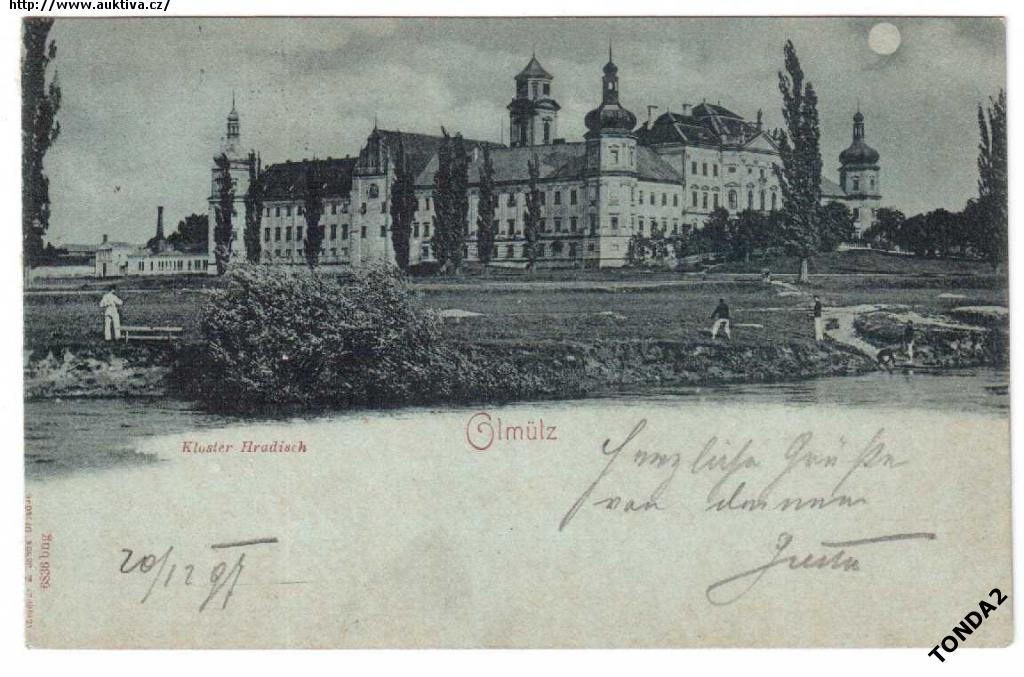 http://www.auktiva.cz/
Kloster Hradisch
Olmütz
Herzliche Grüße
von deinem
20/12 97
6836 bng
TONDA2